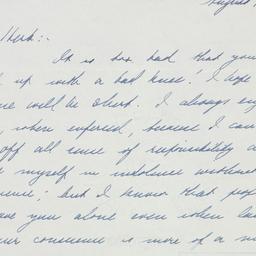 August
Herb:-
It is too bad that you
up with a bad knee! I hope
will be short. I always enj
, when enforced, because I can
off all sense of responsibility a
myself in indolence without
; but I know that peop
you alone even when la
conscience is more of a